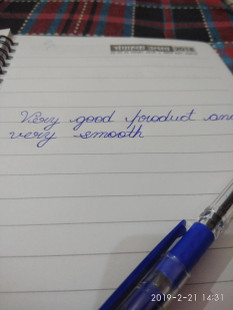 Very good product and
very smooth
2019-2-21 14:31